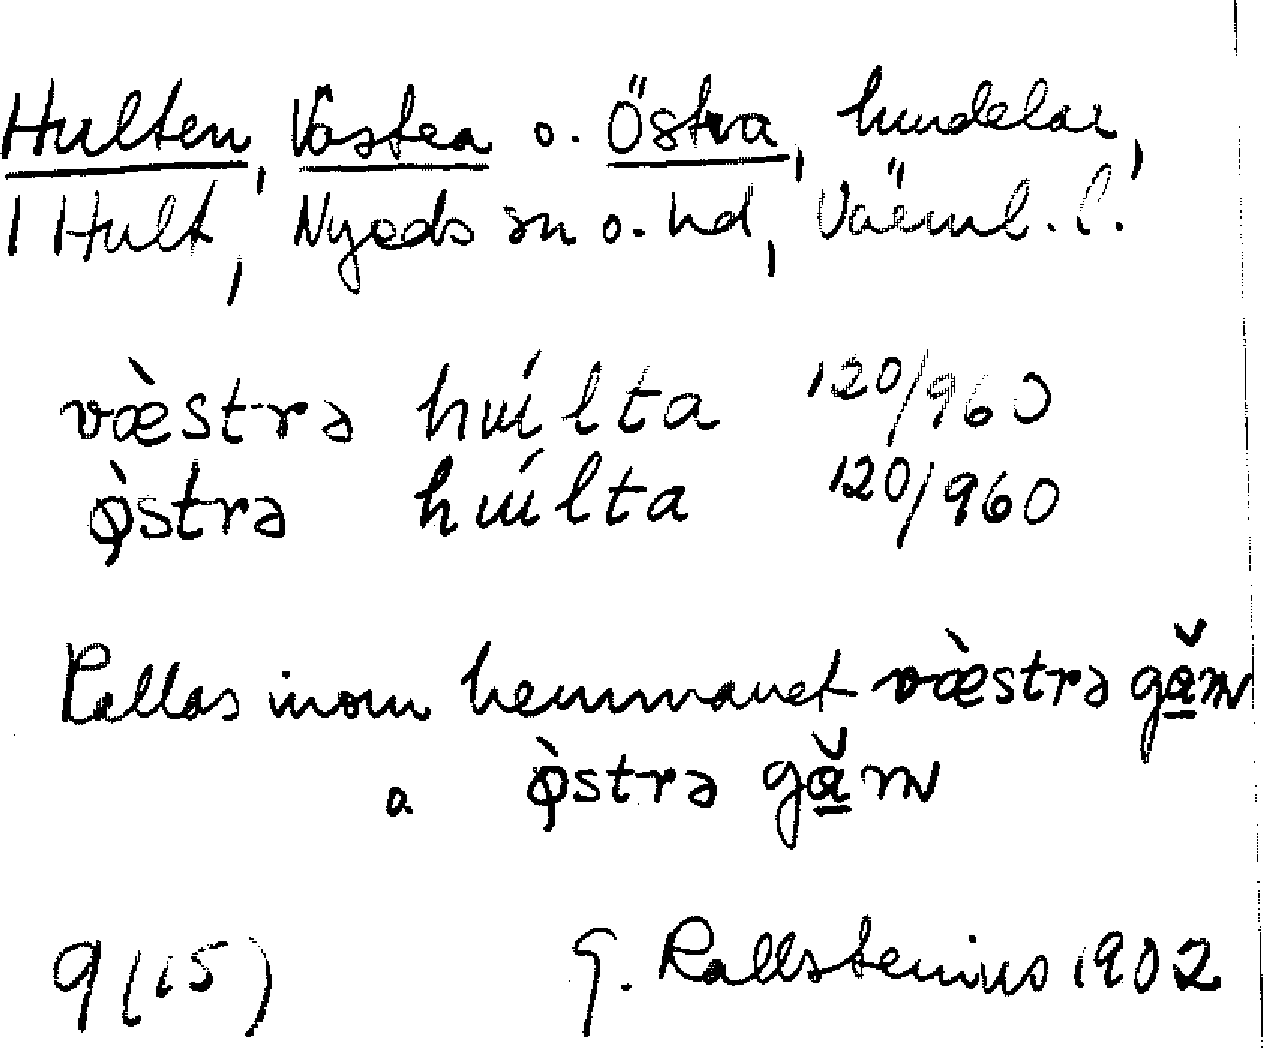 Hulten, Västra o. Östra, hmdelar,
1 Hult, Nyeds sn o. hd, Värml. l.
væ̀strə hɯ́lta 120/960
ø̀strə hɯ́lta 120/960
Kallas inom hemmanet væ̀strə gǎ̱m
o ø̀strə gǎ̱m
9 (15) G. Kallstenius 1902